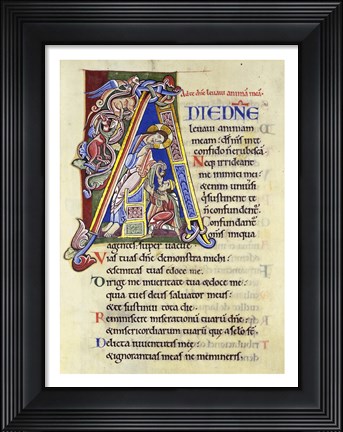 Ad te dñe levavi animã meã.
AD TE DÑE
levavi animam
meam: ds̄ ms̄ in te
confido n̄ erubescã
Neq; irrideant
me inimici mei:
& enim universi
qui sustinent te
n̄ confundent̃.
Confundant̃
oms̄ iniqua
agentes: super vacue
Vias tuas dñe demonstra michi:
& semitas tuas edoce me.
Dirige me in veritate tua & doce me:
quia tu es deus salvator meus:
& te sustinui tota die.
Reminiscere miserationũ tuarũ dñe:
& misericordiarum tuarũ que a sc̄lo sẽ.
Delicta iuventutis mee:
& ignorantias meas ne memineris.